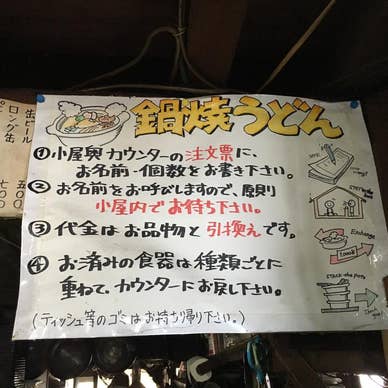 鍋焼うどん
①小屋奥カウンターの注文票に、
お名前・個数をお書き下さい。
②お名前をお呼びしますので、原則
小屋内でお待ち下さい。
③代金はお品物と引換えです。
④お済みの食器は種類ごとに
重ねて、カウンターにお戻し下さい。
(ティッシュ等のゴミはお持ち帰り下さい。)
Exchange
缶ビール
ロング缶